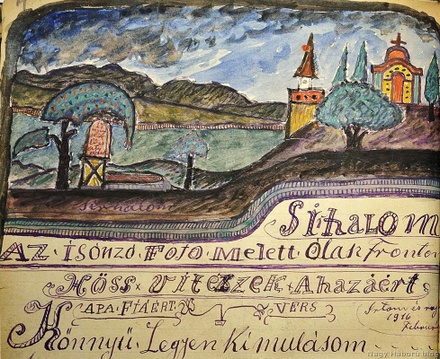 Sírhalom
Sírhalom
Az Isonzo Fojo Melett Olasz Fronton
Höss Vitézek Ahazáért
Apa Fiáért Vers
1916
Könnyü Legyen Kimulásom
Nagy Háború blog